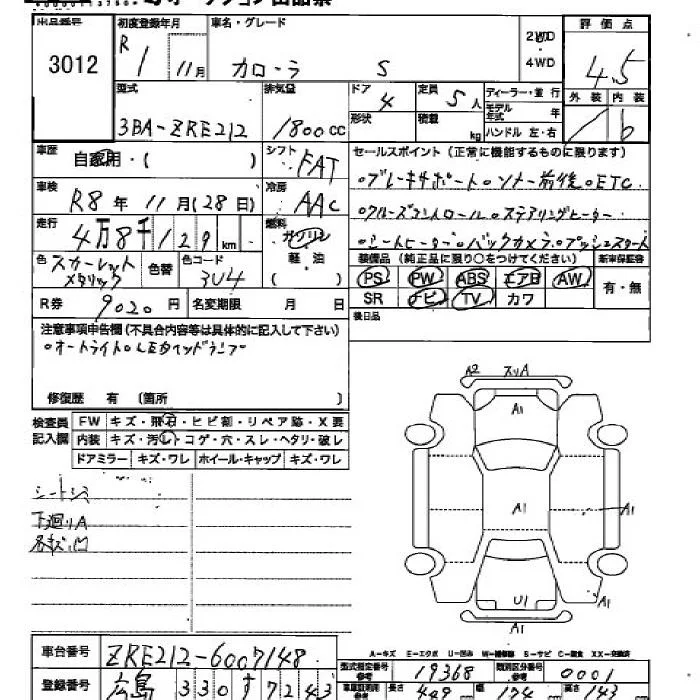 3012
初度登録年月
R 1 11月
車名・グレード
カローラ S
2WD
4WD
評価点
4.5
外装 内装
型式
3BA-ZRE212
排気量
1800 CC
ドア
4
形状
定員
5人
積載
kg
ディーラー・並行
モデル年式 年
ハンドル 左・右
車歴
自家用・( )
シフト
FAT
セールスポイント (正常に機能するものに限ります)
・ブレーキサポート・ソナー前後・ETC
・クルーズコントロール・ステアリングヒーター
・シートヒーター・バックカメラ・プッシュスタート
車検
R8 年 11月(28日)
冷房
AAC
走行
4万8千129km
燃料
ガソリン
軽・油
( )
色
スカーレットメタリック
色替
色コード
3U4
装備品 (純正品に限り○をつけてください)
PS PW ABS エアB AW
SR ナビ TV カワ
新車保証書
有・無
R券
9020円
名変期限 月 日
後日品
注意事項申告欄(不具合内容等は具体的に記入して下さい)
・オートライト・LEDヘッドランプ
修復歴 有 (箇所 )
検査員記入欄
FW キズ・飛石・ヒビ割・リペア跡・X要
内装 キズ・汚レ・コゲ・穴・スレ・ヘタリ・破レ
ドアミラー キズ・ワレ ホイール・キャップ キズ・ワレ
下廻りA
A2 スリA
A1
A1 A1
U1 A1
A1
A-キズ E-エクボ U-凹み W-補修跡 S-サビ C-腐食 XX-交換済
車台番号
ZRE212-6007148
登録番号
広島 330 す 7243
型式指定番号
19368
類別区分番号
0001
長さ
449
幅
174
高さ
143